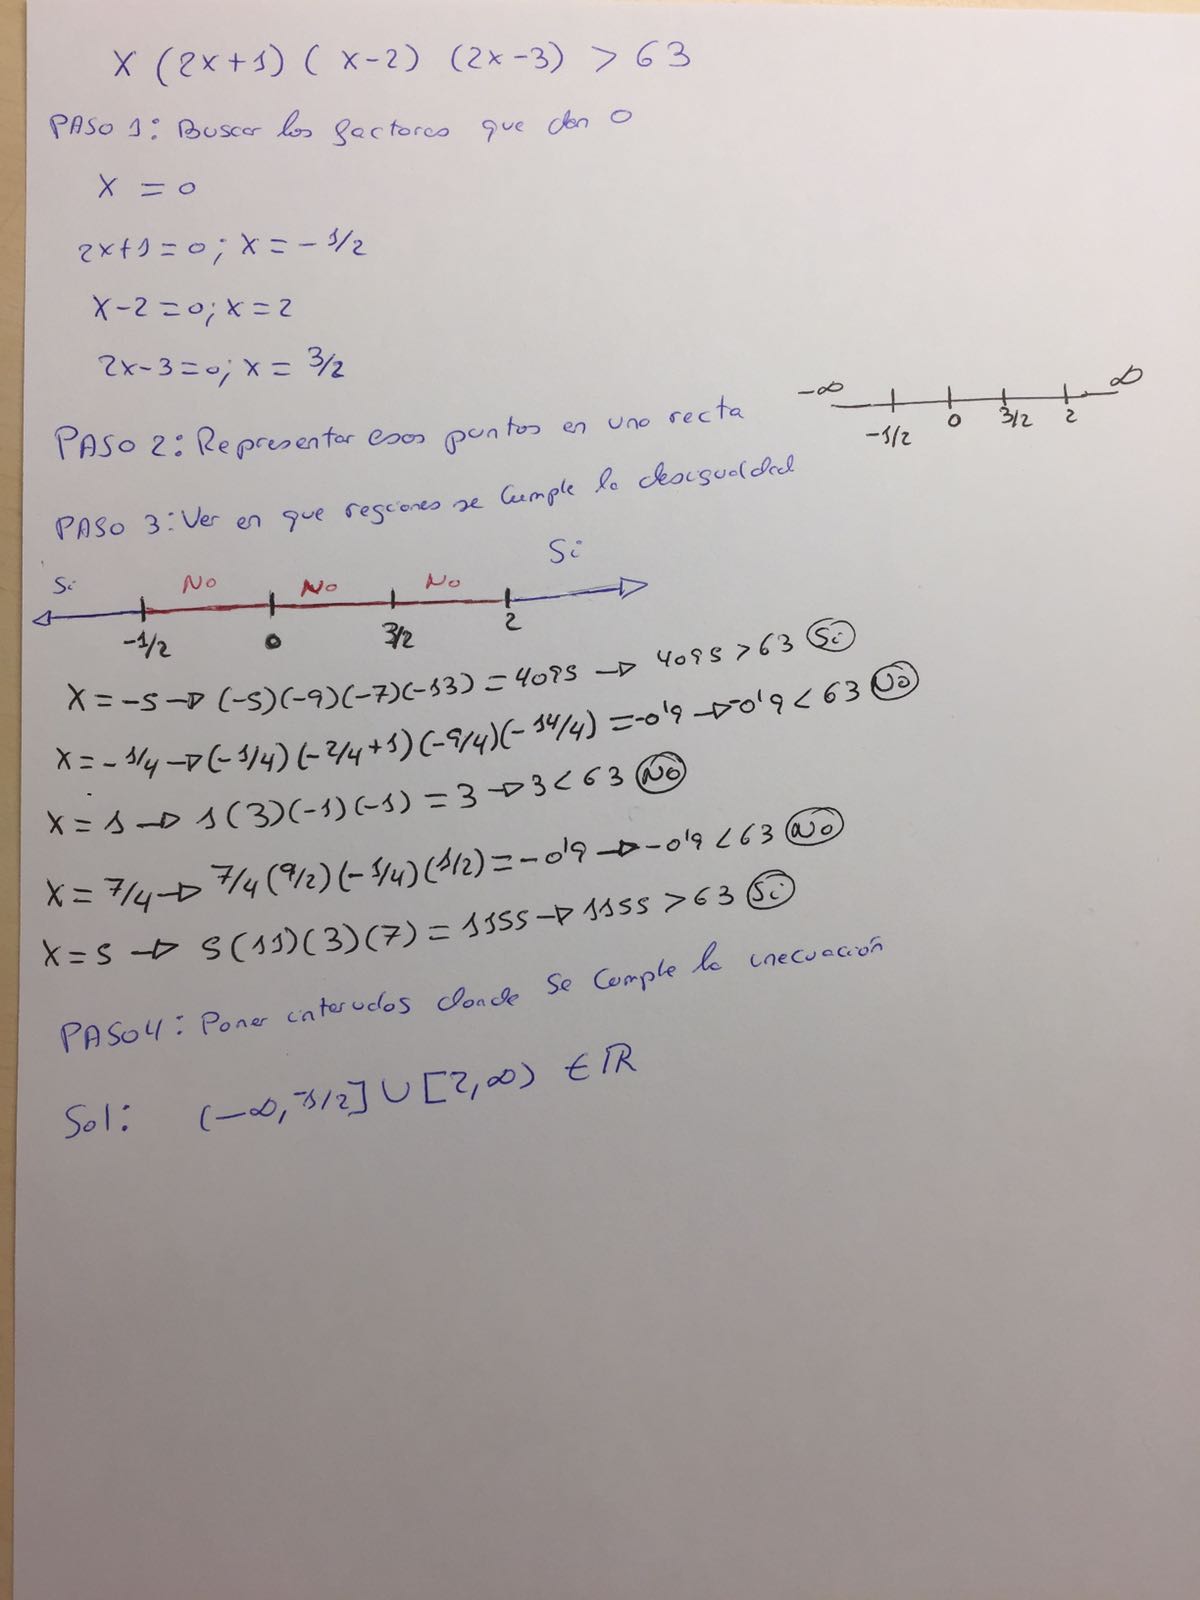 x (2x+1) ( x-2) (2x-3) > 63
PASO 1: Buscar los factores que dan 0
x = 0
2x+1=0; x=-1/2
x-2=0; x=2
2x-3=0; x= 3/2
PASO 2: Representar esos puntos en una recta
-∞ -1/2 0 3/2 2 ∞
PASO 3: Ver en que regiones se cumple la desigualdad
Si No No No Si
-1/2 0 3/2 2
x=-5 → (-5)(-9)(-7)(-13) = 4095 → 4095 > 63 Si
x=-1/4 → (-1/4)(-2/4+1)(-9/4)(-14/4) = -0'9 → -0'9 < 63 No
x=1 → 1(3)(-1)(-1) = 3 → 3 < 63 No
x=7/4 → 7/4(9/2)(-1/4)(1/2) = -0'9 → -0'9 < 63 No
x=5 → 5(11)(3)(7) = 1155 → 1155 > 63 Si
PASO 4: Poner intervalos donde se cumple la inecuación
Sol: (-∞, -1/2] ∪ [2, ∞) ∈ ℝ